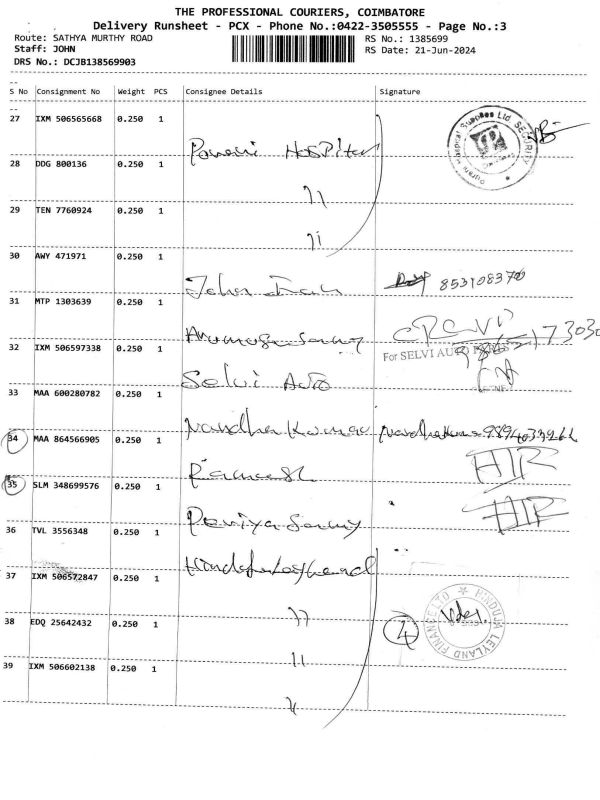 THE PROFESSIONAL COURIERS, COIMBATORE
Delivery Runsheet - PCX - Phone No.:0422-3505555 - Page No.:3
Route: SATHYA MURTHY ROAD
RS No.: 1385699
Staff: JOHN
RS Date: 21-Jun-2024
DRS No.: DCJB138569903
--
S No Consignment No Weight PCS Consignee Details Signature
--
27 IXM 506565668 0.250 1
Hospital
28 DDG 800136 0.250 1
29 TEN 7760924 0.250 1
30 AWY 471971 0.250 1
John
31 MTP 1303639 0.250 1
32 IXM 506597338 0.250 1
For SELVI AUTO
Selvi Auto
33 MAA 600280782 0.250 1
Nandha Kumar
34 MAA 864566905 0.250 1
Ramesh
35 SLM 348699576 0.250 1
Periyasamy
36 TVL 3556348 0.250 1
37 IXM 506572847 0.250 1
HINDUJA LEYLAND FINANCE LTD
38 EDQ 25642432 0.250 1
4
39 IXM 506602138 0.250 1